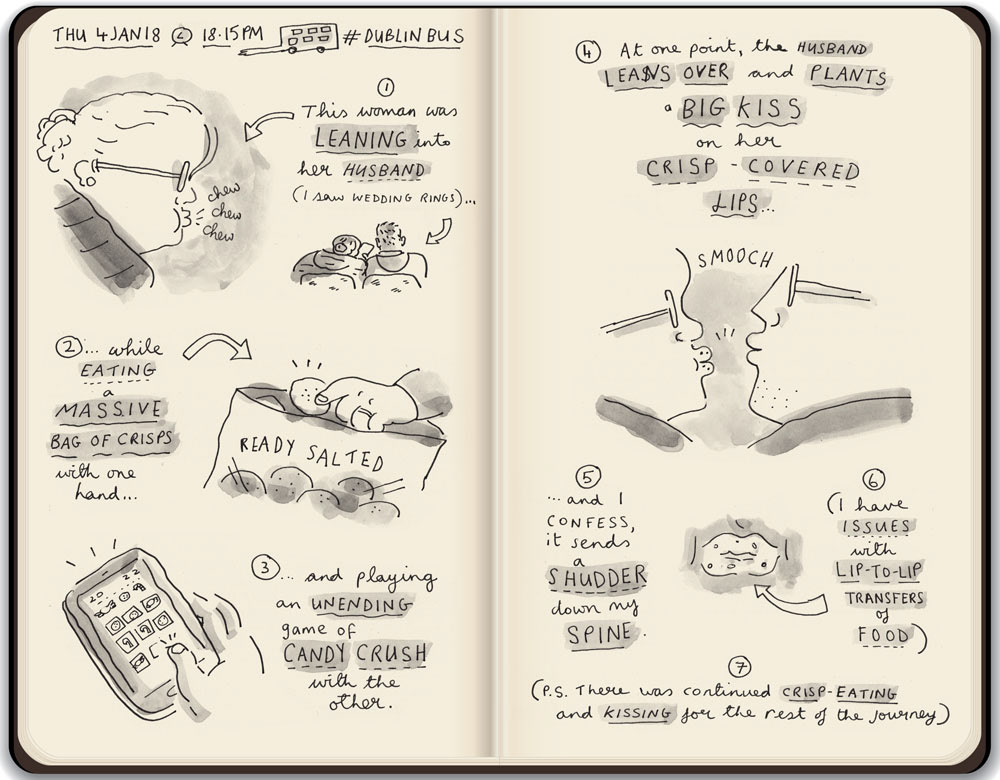 THU 4 JAN 18 18.15PM #DUBLINBUS
①
This woman was
LEANING into
her HUSBAND
(I SAW WEDDING RINGS)...
chew
chew
chew
②... while
EATING
a
MASSIVE
BAG OF CRISPS
with one
hand...
READY SALTED
③... and playing
an UNENDING
game of
CANDY CRUSH
with the
other.
④ At one point, the HUSBAND
LEANS OVER and PLANTS
a BIG KISS
on her
CRISP-COVERED
LIPS...
SMOOCH
⑤
... and I
CONFESS,
it sends
a
SHUDDER
down my
SPINE.
⑥
(I have
ISSUES
with
LIP-TO-LIP
TRANSFERS
of
FOOD)
⑦
(P.S. There was continued CRISP-EATING
and KISSING for the rest of the journey)